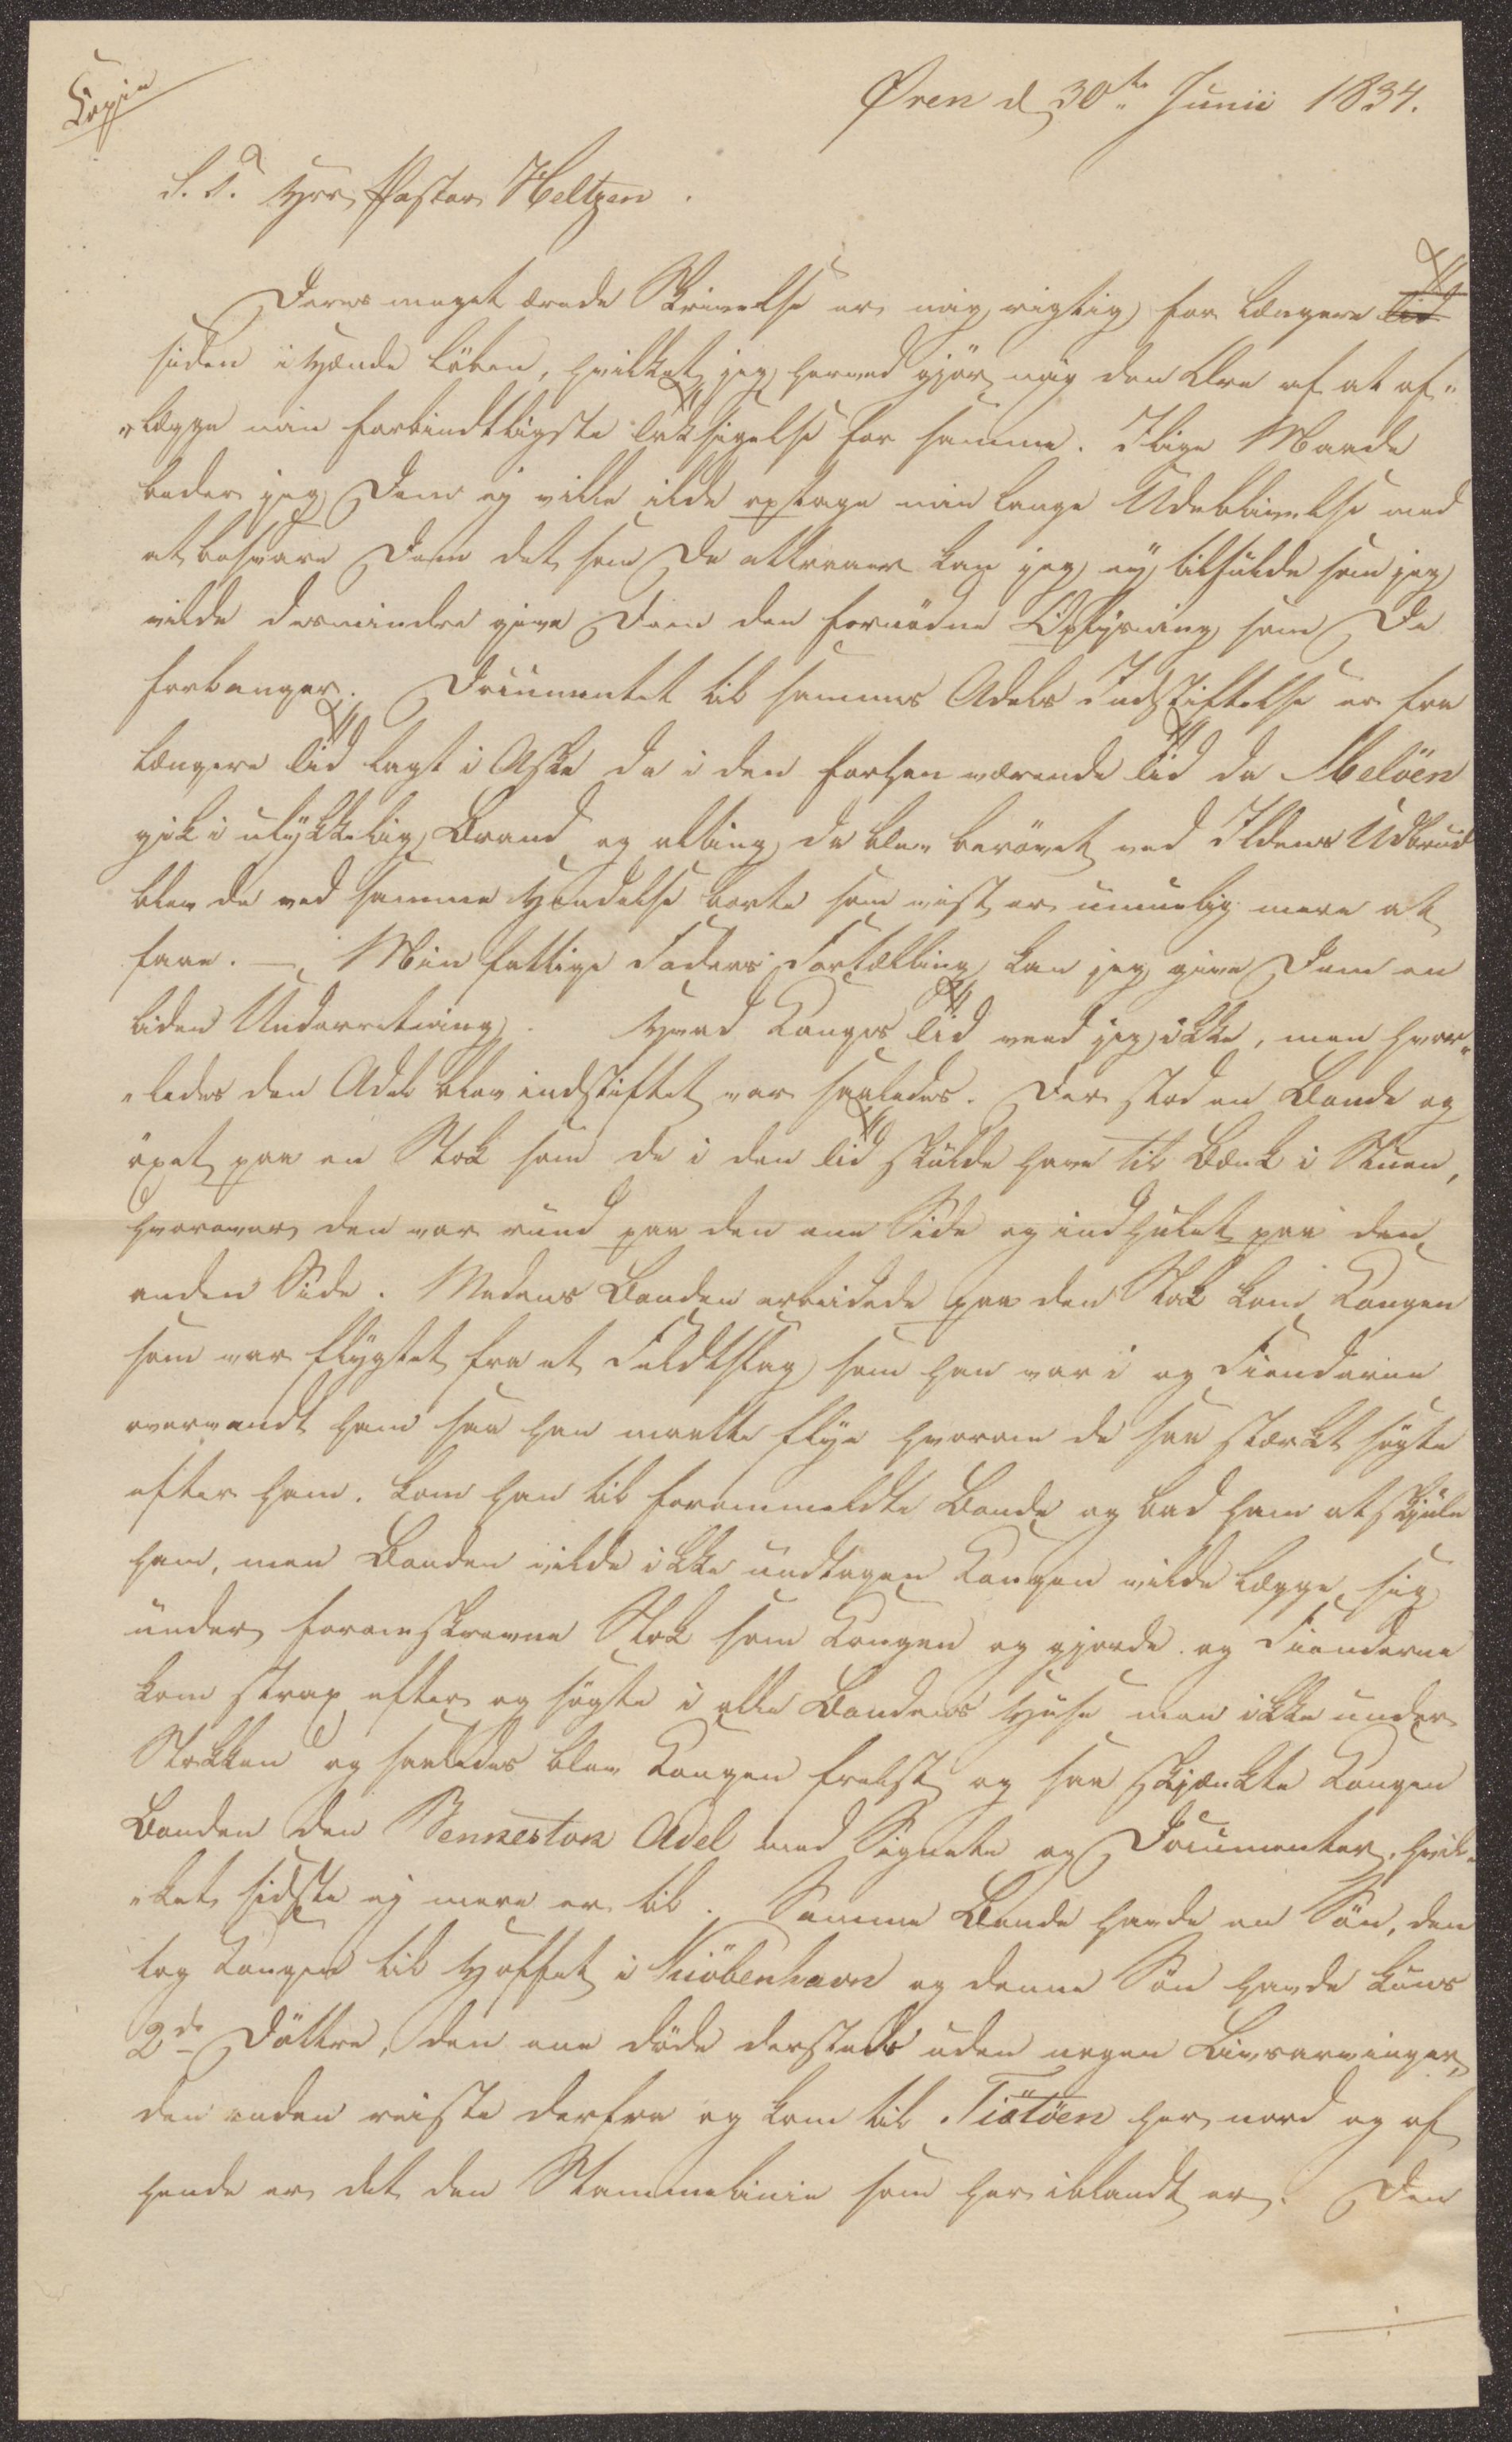 Copie
Øren d 30te Junii 1834.
S. T. Hrr Pastor Heltzen.
Deres meget ærede Skrivelse er mig rigtig for længere Tid
siden i Hænde løben, hvilket jeg herved gjør mig den Ære af at af-
„lægge min forbindtligste Taksigelse for samme. Ilige Maade
beder jeg Dem ej ville ilde optage min lange Udeblivelse med
at besvare Dem det som De attraaer kan jeg ej tilfulde som jeg
vilde desmindre give Dem den fornødne Oplysning som De
forlanger. Documentet til sammes Adels Indstiftelse er fra
længere Tid lagt i Aske da i den forhen værende Tid da Meløen
gik i ulykkelig Brand og alting da blev berøvet ved Ildens Udbrud
blev de ved samme Hændelse borte som vist er umuelig mere at
faae. — Min fattige Faders Fortælling kan jeg give Dem en
liden Underretning. Hvad Konges Tid veed jeg ikke, men hvor-
„ledes den Adel blev indstiftet var saaledes. Der stod en Bonde og
öxet paa en Stok som de i den Tid skulde have til Bænk i Stuen,
hvorover den var rund paa den ene Side og indhulet paa den
anden Side. Medens Bonden arbeidede paa den Stok kom Kongen
som var flygtet fra et Feldtslag som han var i og Fienderne
overvandt ham saa han maatte flye hvorom de saa stærkt søgte
efter ham. kom han til forommeldte Bonde og bad ham at skjule
ham, men Bonden vilde ikke undtagen Kongen vilde lægge sig
under foromskrevne Stok som Kongen og gjorde. og Fienderne
kom strax efter og søgte i alle Bondens Huse men ikke under
Stokken og saaledes blev Kongen frelst og saa skjænkte Kongen
Bonden den Benkestok Adel med Signete og Documenter, hvil-
„ket sidste ej mere er til. Samme Bonde havde en Søn, den
tog Kongen til Hoffet i Kiöbenhavn og denne Søn havde kuns
2de Döttre, den ene döde dersteds uden nogen Livsarvinger,
den anden reiste derfra og kom til Tiötöen her nord og af
hende er det den Stammelinie som her iblandt er. Den